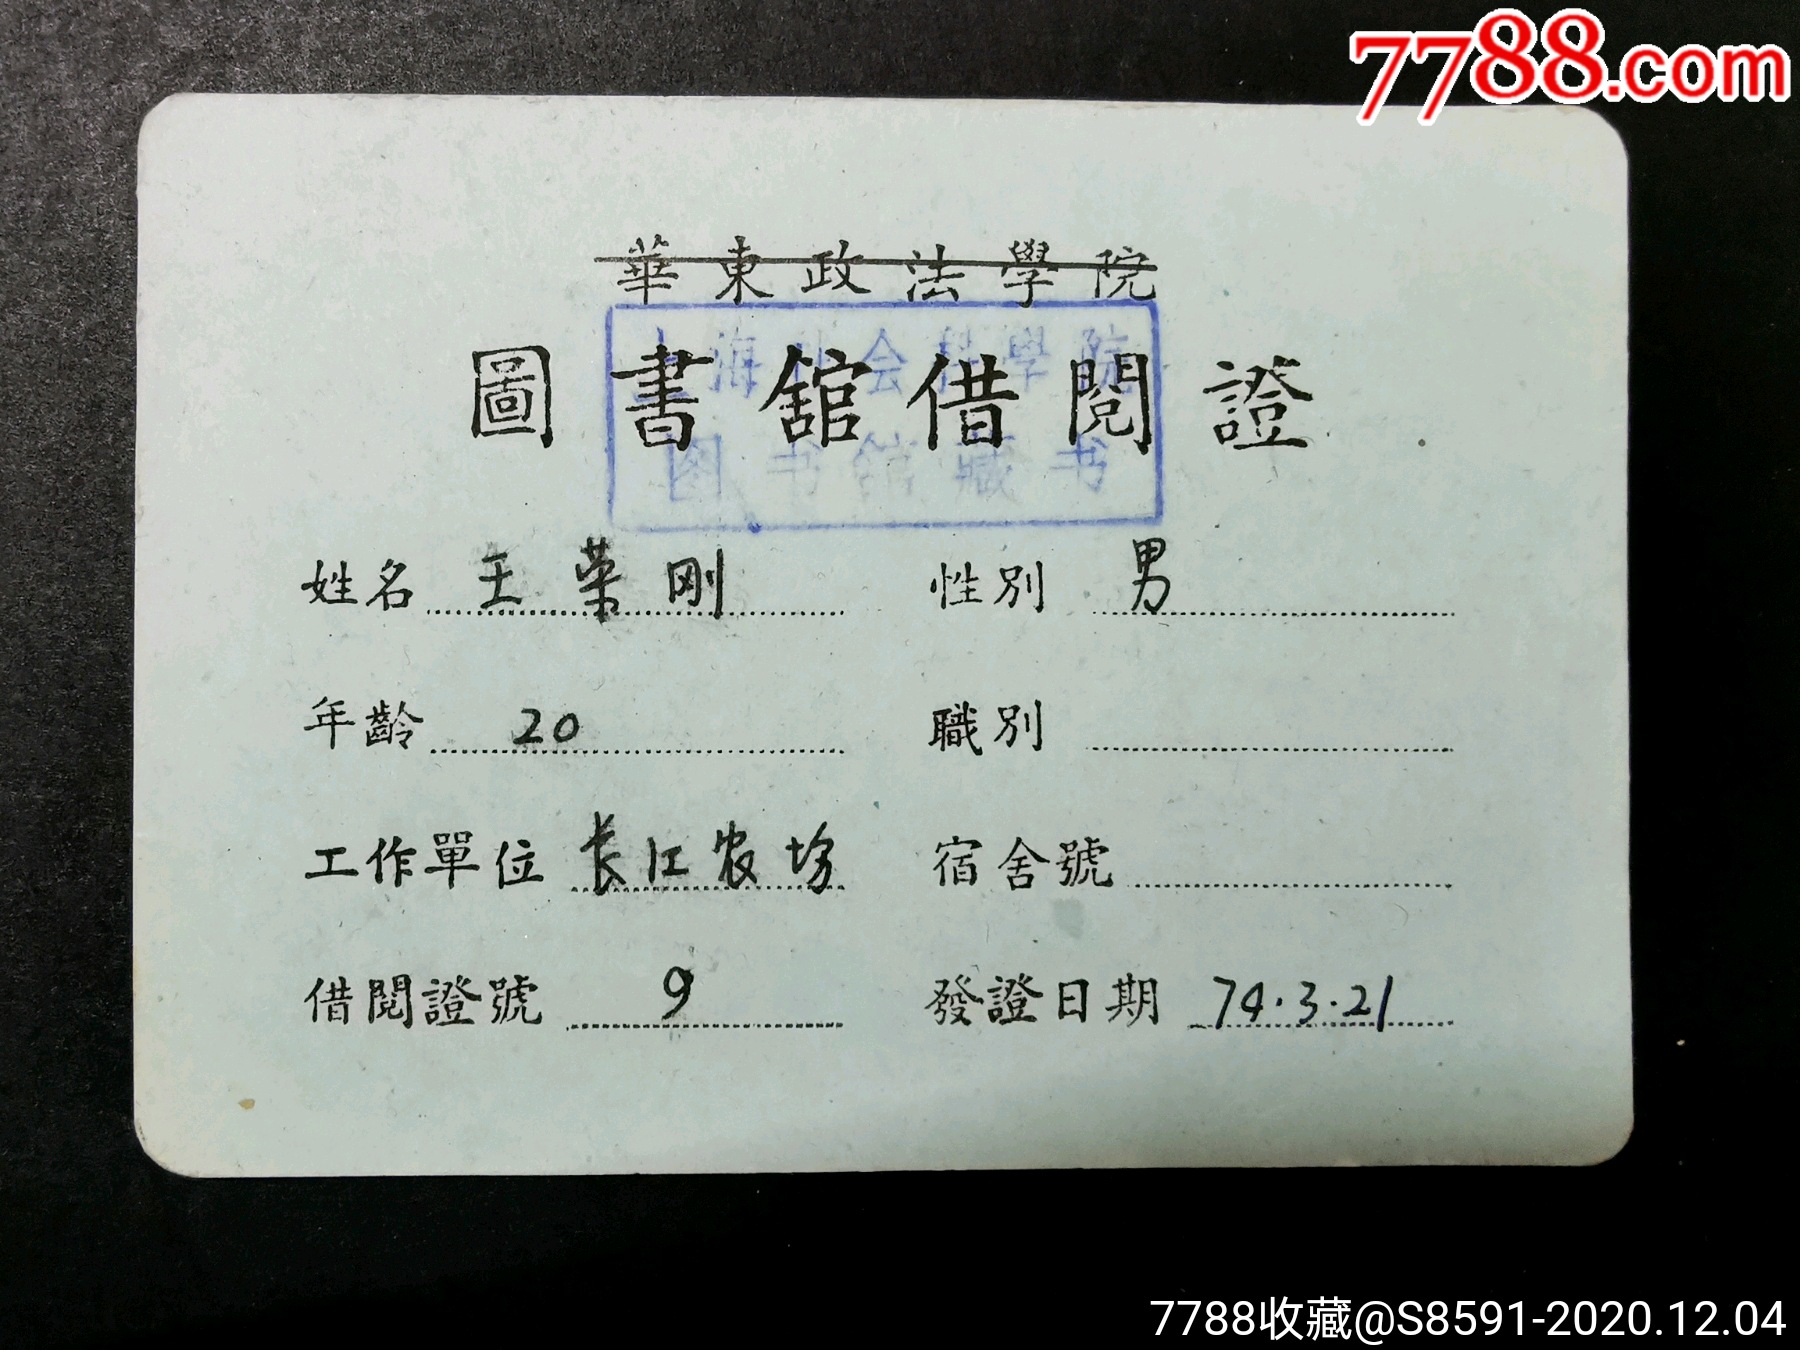 7788.com
華東政法學院
上海社会科學院
圖書舘借閱證
图书舘藏书
姓名 王荣刚 性別 男
年齡 20 職別
工作單位 长江农场 宿舍號
借閱證號 9 發證日期 74.3.21
7788收藏@S8591-2020.12.04